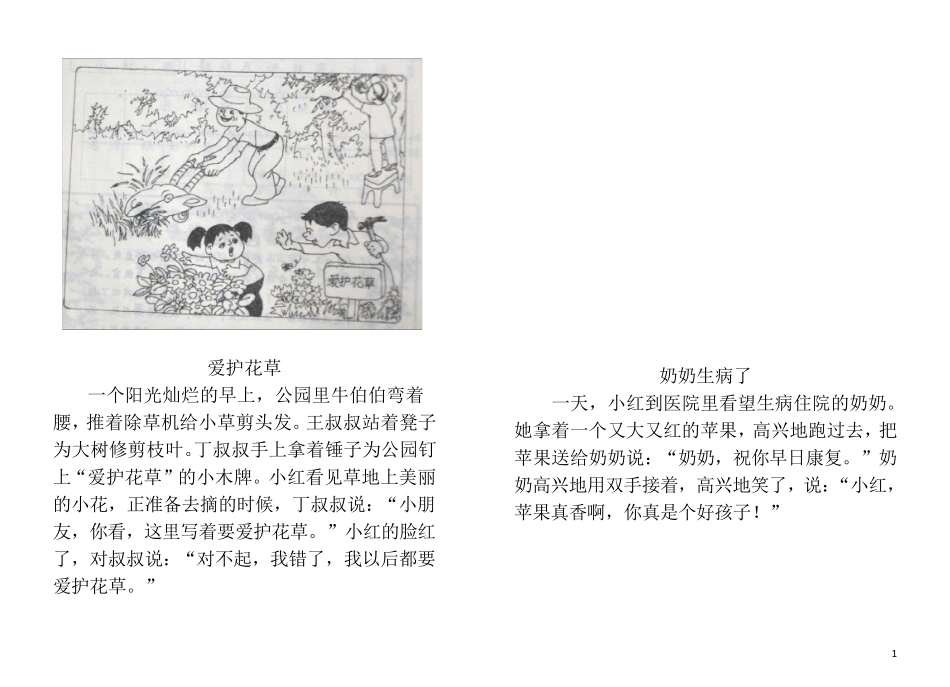 爱护花草
爱护花草
一个阳光灿烂的早上，公园里牛伯伯弯着
腰，推着除草机给小草剪头发。王叔叔站着凳子
为大树修剪枝叶。丁叔叔手上拿着锤子为公园钉
上“爱护花草”的小木牌。小红看见草地上美丽
的小花，正准备去摘的时候，丁叔叔说：“小朋
友，你看，这里写着要爱护花草。”小红的脸红
了，对叔叔说：“对不起，我错了，我以后都要
爱护花草。”
奶奶生病了
一天，小红到医院里看望生病住院的奶奶。
她拿着一个又大又红的苹果，高兴地跑过去，把
苹果送给奶奶说：“奶奶，祝你早日康复。”奶
奶高兴地用双手接着，高兴地笑了，说：“小红，
苹果真香啊，你真是个好孩子！”
1